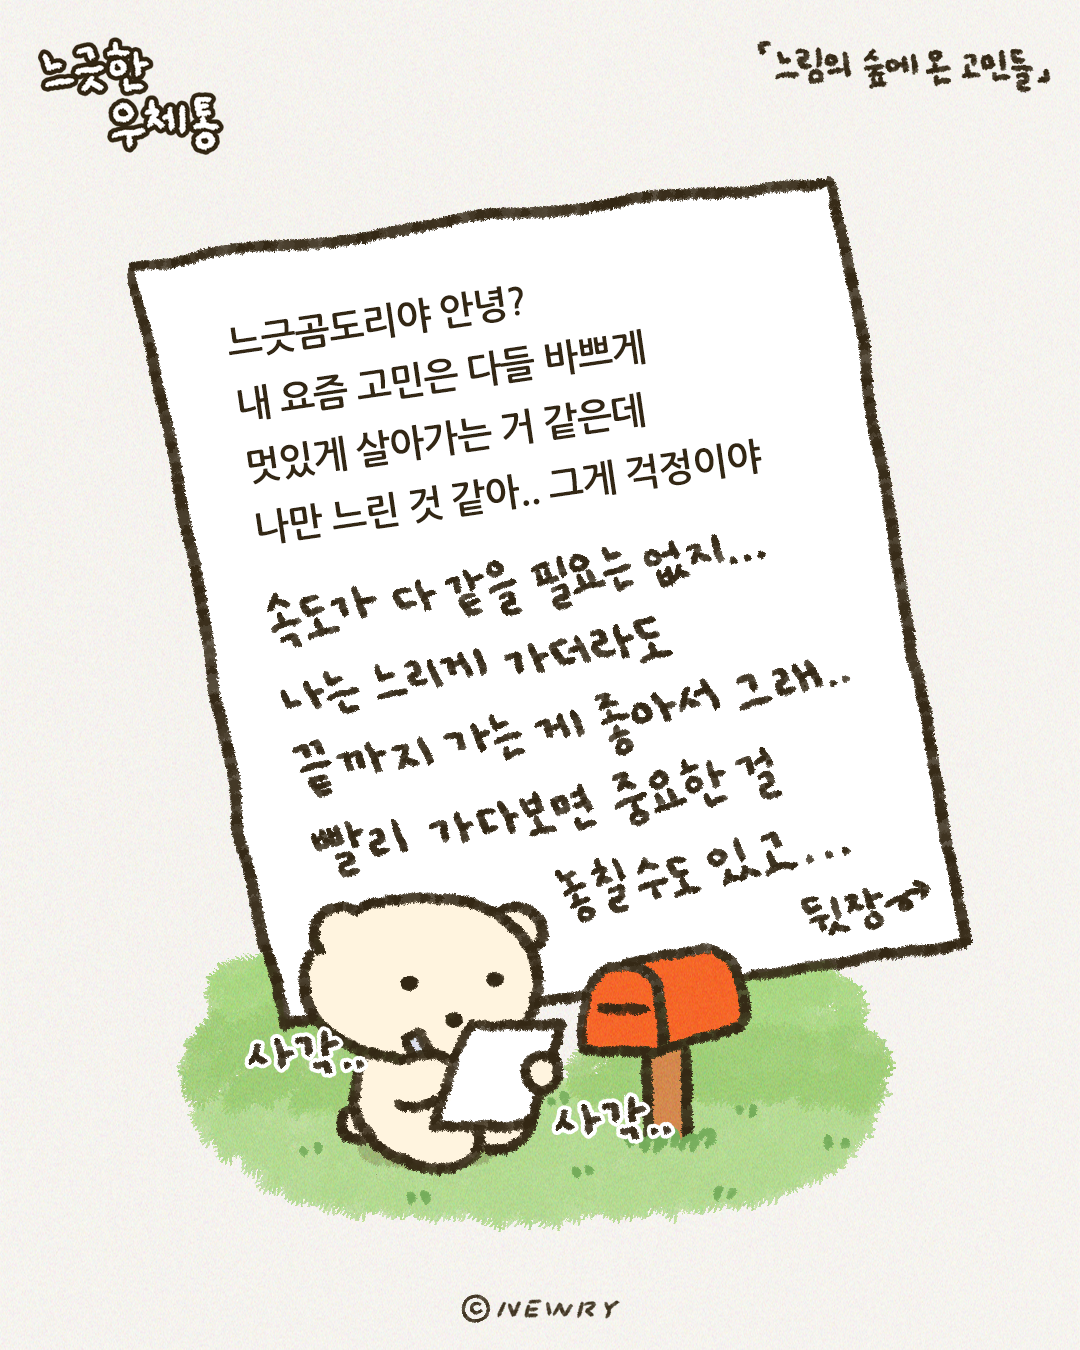 느긋한
우체통
「느림의 숲에 온 고민들」
느긋곰도리야 안녕?
내 요즘 고민은 다들 바쁘게
멋있게 살아가는 거 같은데
나만 느린 것 같아.. 그게 걱정이야
속도가 다 같을 필요는 없지...
나는 느리게 가더라도
끝까지 가는 게 좋아서 그래..
빨리 가다보면 중요한 걸
놓칠수도 있고...
뒷장→
사각..
사각..
©NEWRY